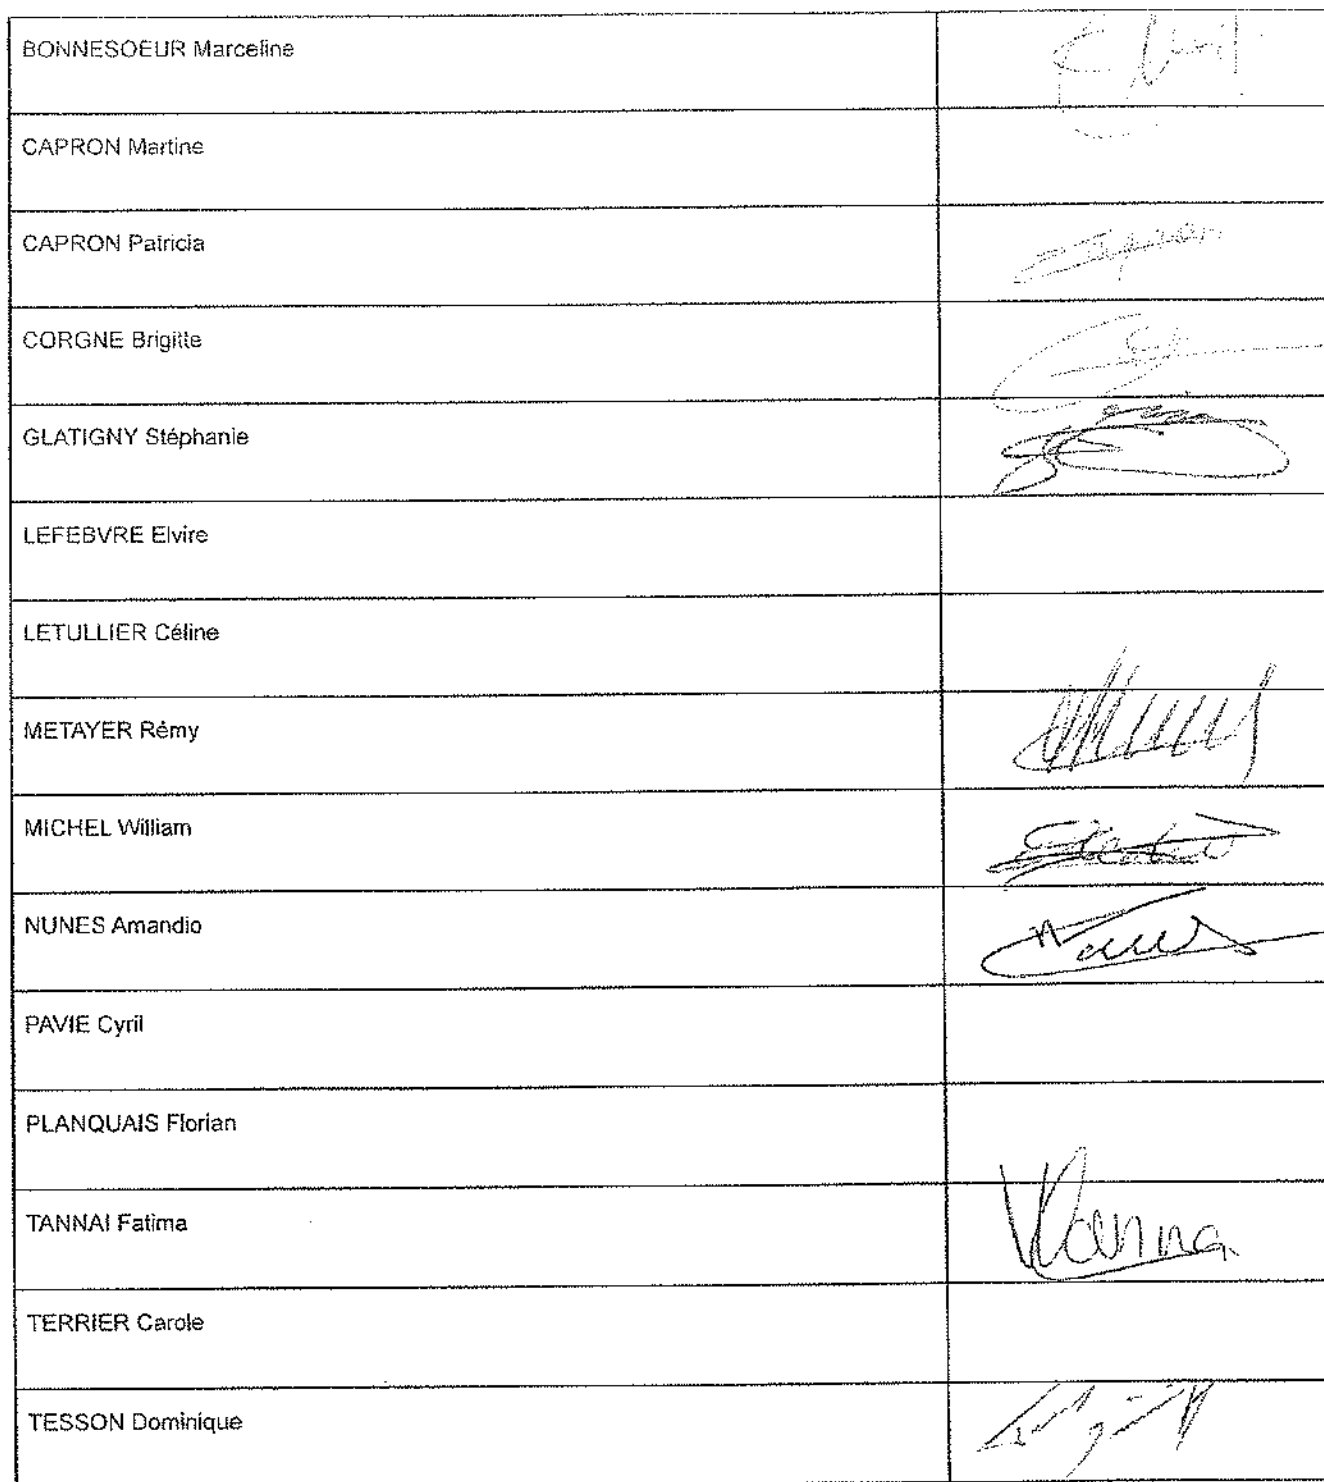 BONNESOEUR Marceline
CAPRON Martine
CAPRON Patricia
Capron
CORGNE Brigitte
GLATIGNY Stéphanie
LEFEBVRE Elvire
LETULLIER Céline
METAYER Rémy
MICHEL William
NUNES Amandio
PAVIE Cyril
PLANQUAIS Florian
TANNAI Fatima
TERRIER Carole
TESSON Dominique